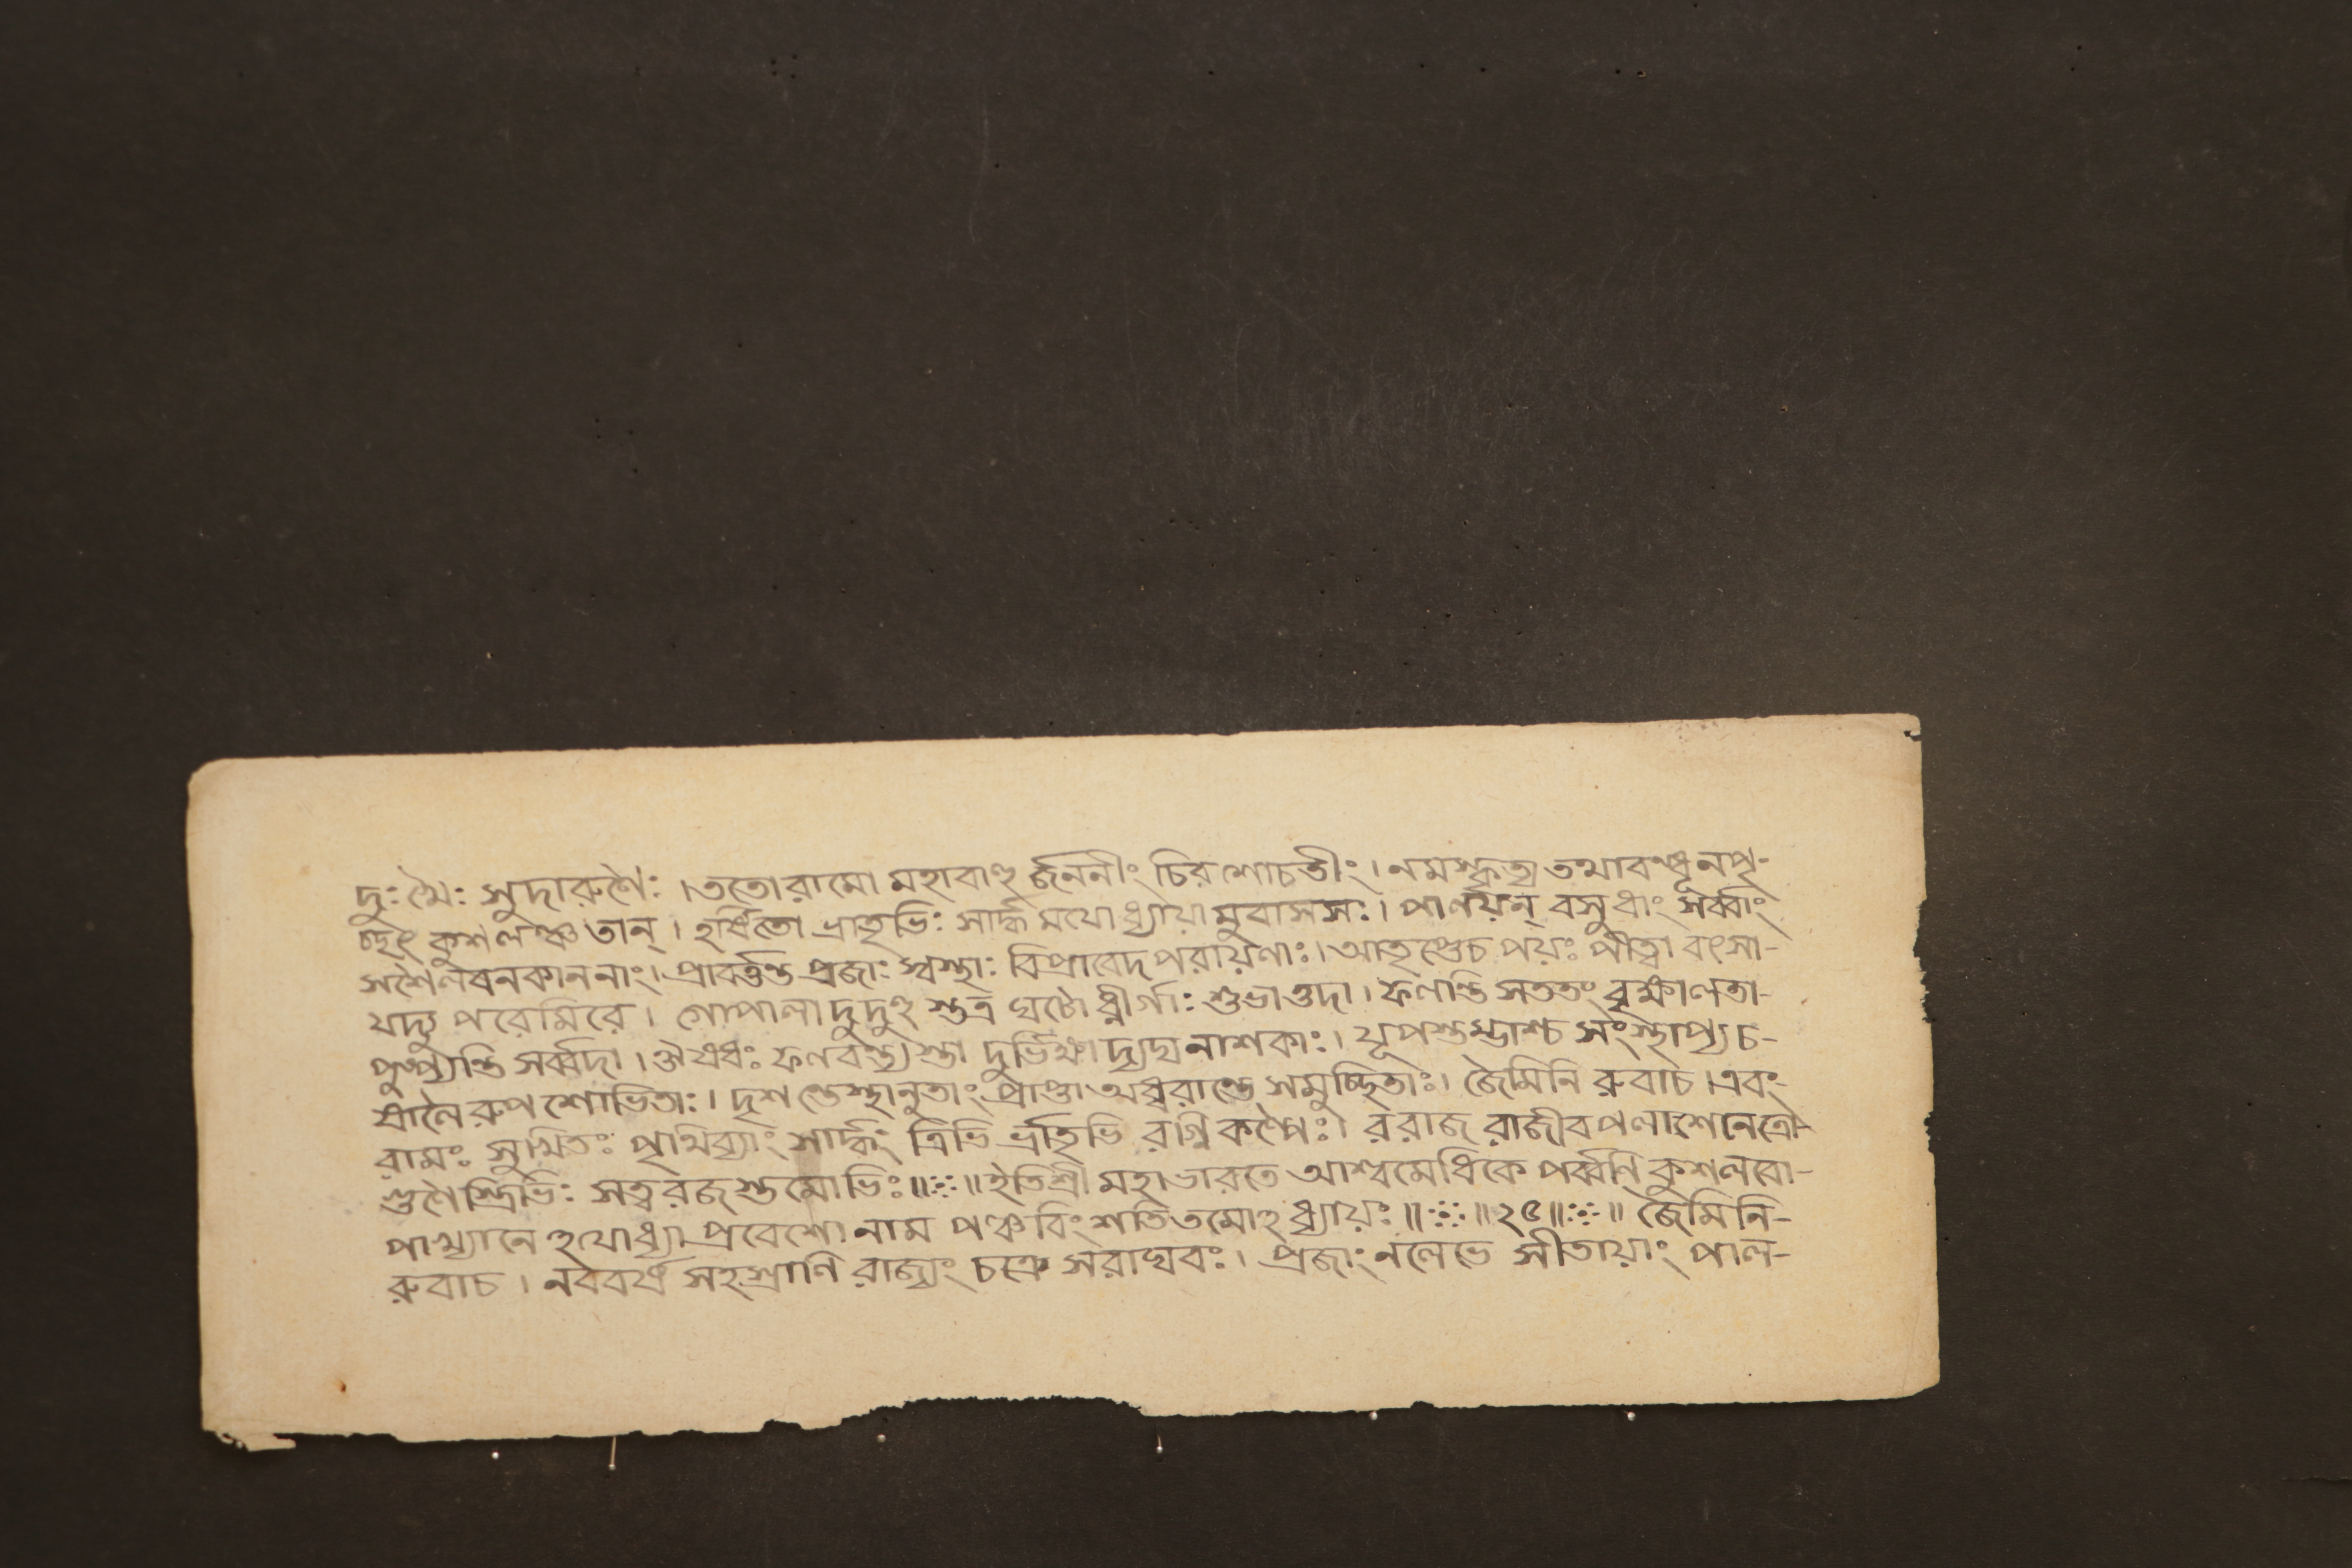 দুঃখৈঃ সুদারুণৈঃ । ততো রামো মহাবাহু র্জননীং চিরশোচতীং । নমস্কৃত্য তথাবন্ধূনপৃ-
চ্ছৎ কুশলঞ্চ তান্ । হর্ষিতো ভ্রাতৃভিঃ সার্দ্ধ মযোধ্যায়া মুবাসসঃ । পালয়ন্ বসুধাং সর্ব্বাং
সশৈলবনকাননাং । প্রাবর্ত্তন্ত প্রজাঃ স্বস্থাঃ বিপ্রাবেদপরায়ণাঃ । আতৃপ্তেচ পয়ঃ পীত্বা বৎসা-
যদ্যু পরেমিরে । গোপালা দুদুহু স্তত্র ঘটোধ্নীর্গাঃ শুভাস্তদা । ফলন্তি সততং বৃক্ষালতা-
পুষ্প্যন্তি সর্ব্বদা । ঔষধ্যঃ ফলবত্ত্য স্তা দুর্ভিক্ষাদ্যঘনাশকাঃ । যূপস্তম্ভাশ্চ সংস্থাপ্য চ-
ষালৈ রুপশোভিতাঃ । দৃশন্তেস্থানুতাং প্রাপ্তা অধ্বরান্তে সমুচ্ছ্রিতাঃ । জৈমিনি রুবাচ । এবং-
রামঃ সুখিতঃ পৃথিব্যাং সার্দ্ধং ত্রিভি র্ভ্রাতৃভি রগ্নিকল্পৈঃ । ররাজ রাজীবপলাশনেত্রো-
গুণৈ স্ত্রিভিঃ সত্বরজস্তমোভিঃ ॥ ॥ ইতিশ্রী মহাভারতে আশ্বমেধিকে পর্ব্বণি কুশলবো-
পাখ্যানে হযোধ্যা প্রবেশো নাম পঞ্চবিংশতিতমোহধ্যায়ঃ ॥ ॥ ২৫ ॥ ॥ জৈমিনি-
রুবাচ । নববর্ষ সহস্রাণি রাজ্যং চক্রে সরাঘবঃ । প্রজাং নলেভে সীতায়াং পাল-